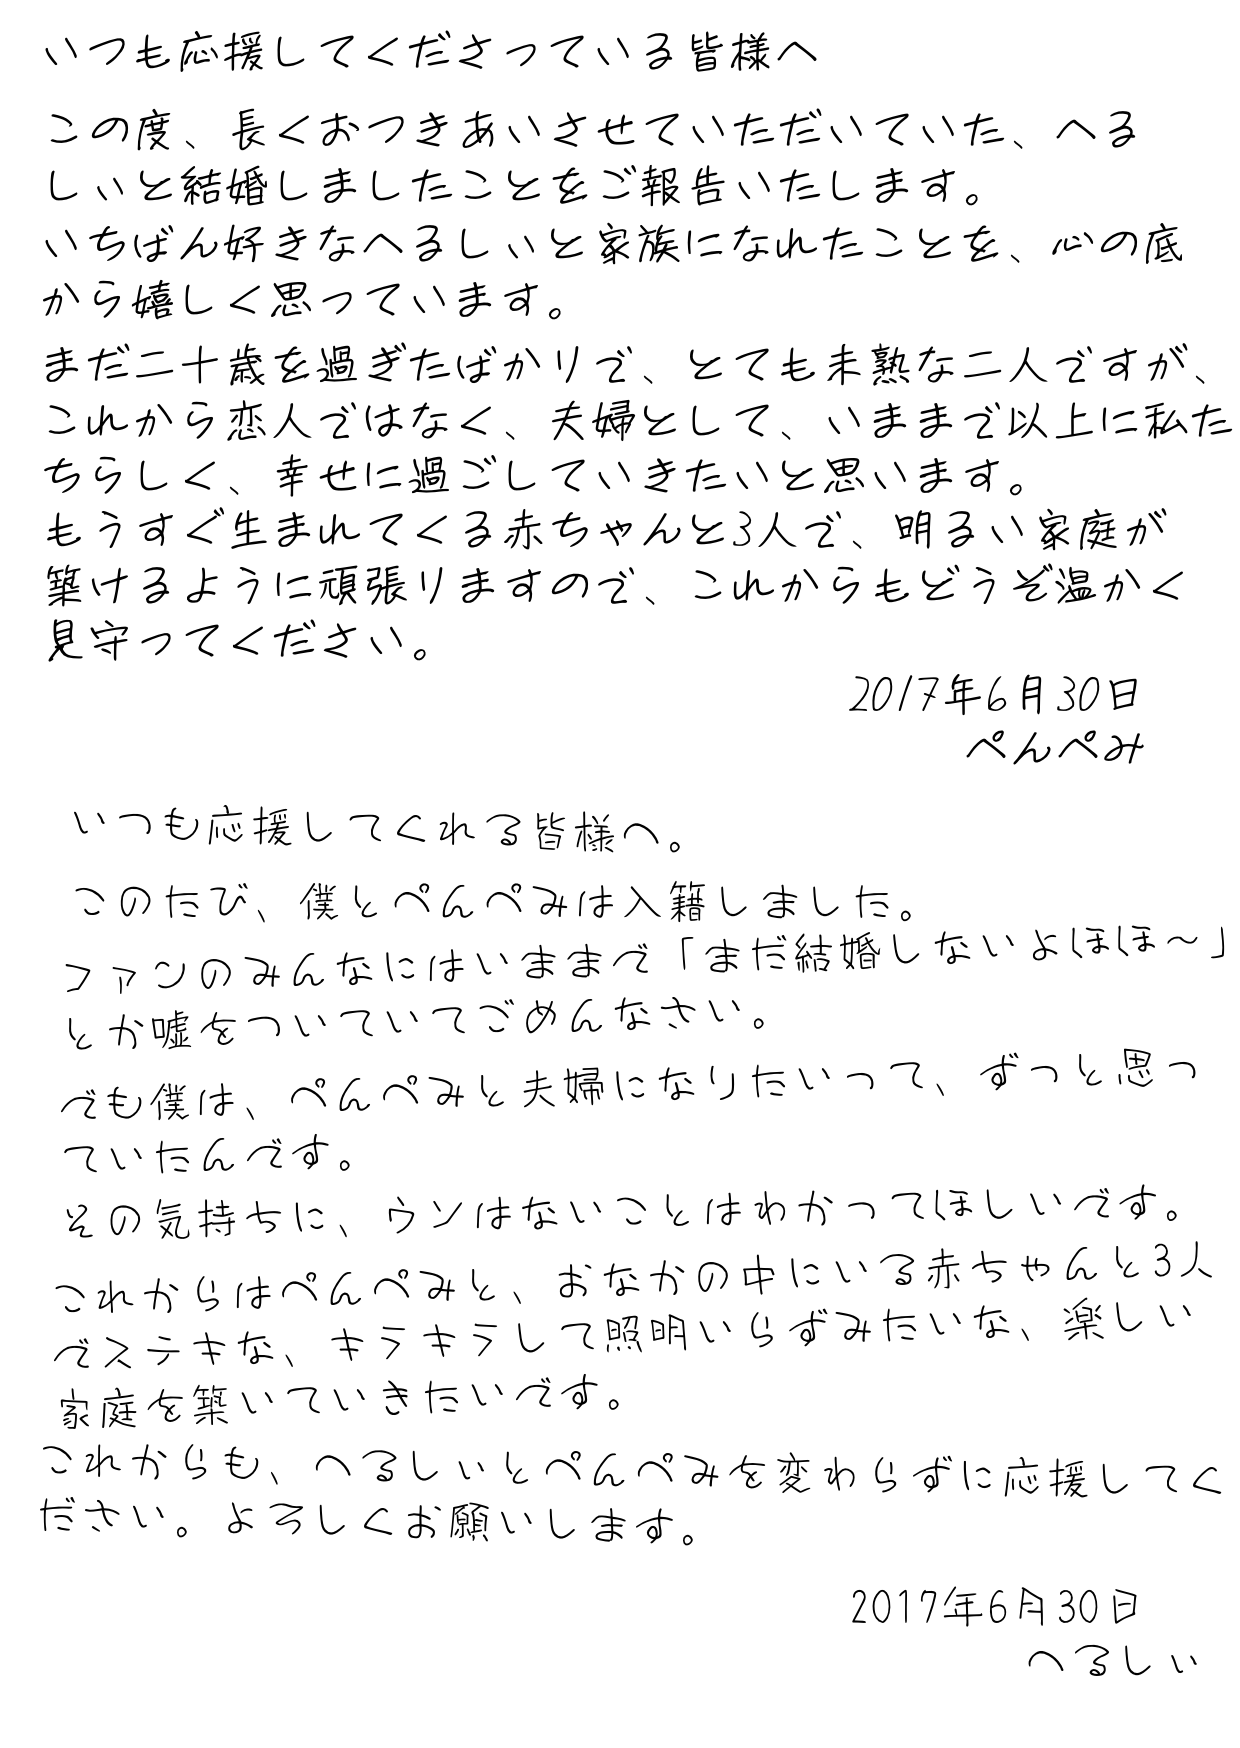 いつも応援してくださっている皆様へ
この度、長くおつきあいさせていただいていた、へる
しぃと結婚しましたことをご報告いたします。
いちばん好きなへるしぃと家族になれたことを、心の底
から嬉しく思っています。
まだ二十歳を過ぎたばかりで、とても未熟な二人ですが、
これから恋人ではなく、夫婦として、いままで以上に私た
ちらしく、幸せに過ごしていきたいと思います。
もうすぐ生まれてくる赤ちゃんと3人で、明るい家庭が
築けるように頑張りますので、これからもどうぞ温かく
見守ってください。
2017年6月30日
ぺんぺみ
いつも応援してくれる皆様へ。
このたび、僕とぺんぺみは入籍しました。
ファンのみんなにはいままで「まだ結婚しないよほほ〜」
とか嘘をついていてごめんなさい。
でも僕は、ぺんぺみと夫婦になりたいって、ずっと思っ
ていたんです。
その気持ちに、ウソはないことはわかってほしいです。
これからはぺんぺみと、おなかの中にいる赤ちゃんと3人
でステキな、キラキラして照明いらずみたいな、楽しい
家庭を築いていきたいです。
これからも、へるしぃとぺんぺみを変わらずに応援してく
ださい。よろしくお願いします。
2017年6月30日
へるしぃ